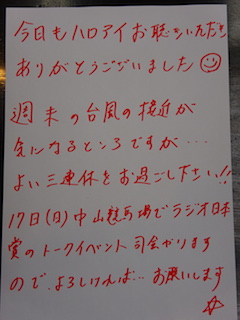 今日もハロアイお聴きいただき
ありがとうございました
週末の台風の接近が
気になるところですが…
よい三連休をお過ごし下さい!!
17日(日)中山競馬場でラジオ日本
賞のトークイベント司会がります
ので、よろしければ…お願いします